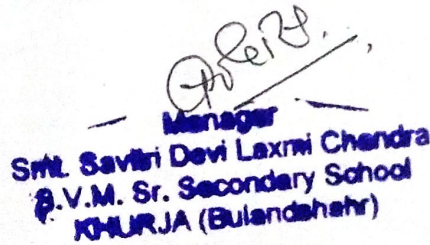 Manager
Smt. Savitri Devi Laxmi Chandra
S.V.M. Sr. Secondary School
KHURJA (Bulandshahr)